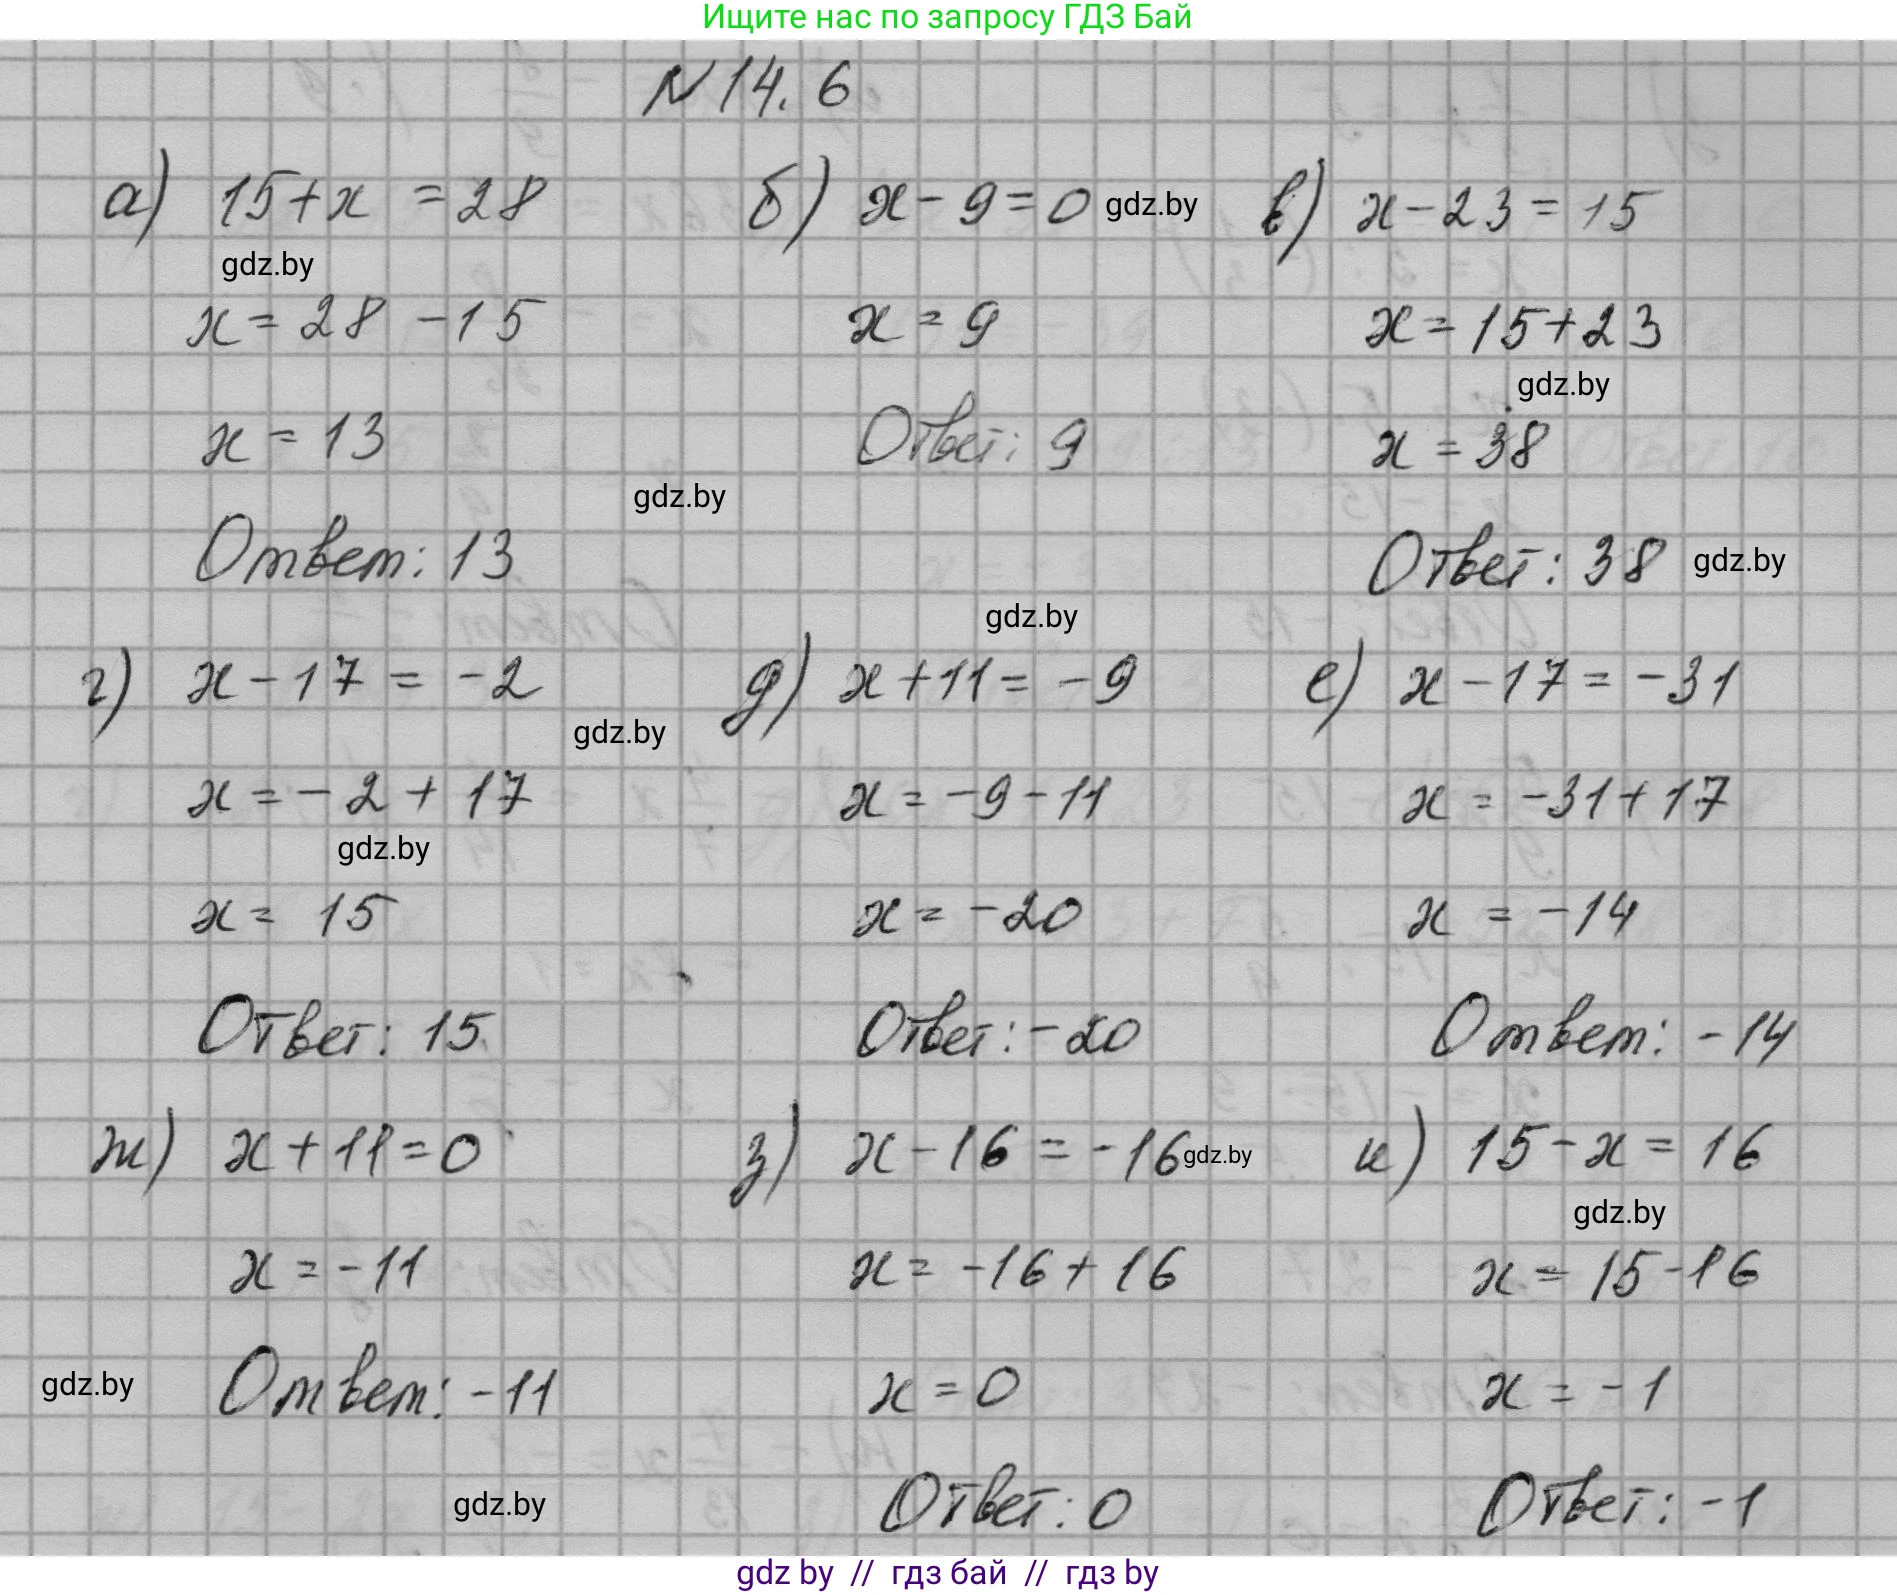 Ищите нас по запросу ГДЗ Бай
№14.6
а) 15+x = 28
gdz.by
x = 28 - 15
x = 13
Ответ: 13
б) x - 9 = 0 gdz.by
x = 9
Ответ: 9
gdz.by
в) x - 23 = 15
x = 15 + 23
gdz.by
x = 38
Ответ: 38 gdz.by
г) x - 17 = -2
gdz.by
x = -2 + 17
gdz.by
x = 15
Ответ: 15
gdz.by
д) x + 11 = -9
x = -9 - 11
x = -20
Ответ: -20
е) x - 17 = -31
x = -31 + 17
x = -14
Ответ: -14
ж) x + 11 = 0
x = -11
gdz.by Ответ: -11
gdz.by
з) x - 16 = -16 gdz.by
x = -16 + 16
x = 0
Ответ: 0
и) 15 - x = 16
gdz.by
x = 15 - 16
x = -1
Ответ: -1
gdz by // гдз бай // гдз by